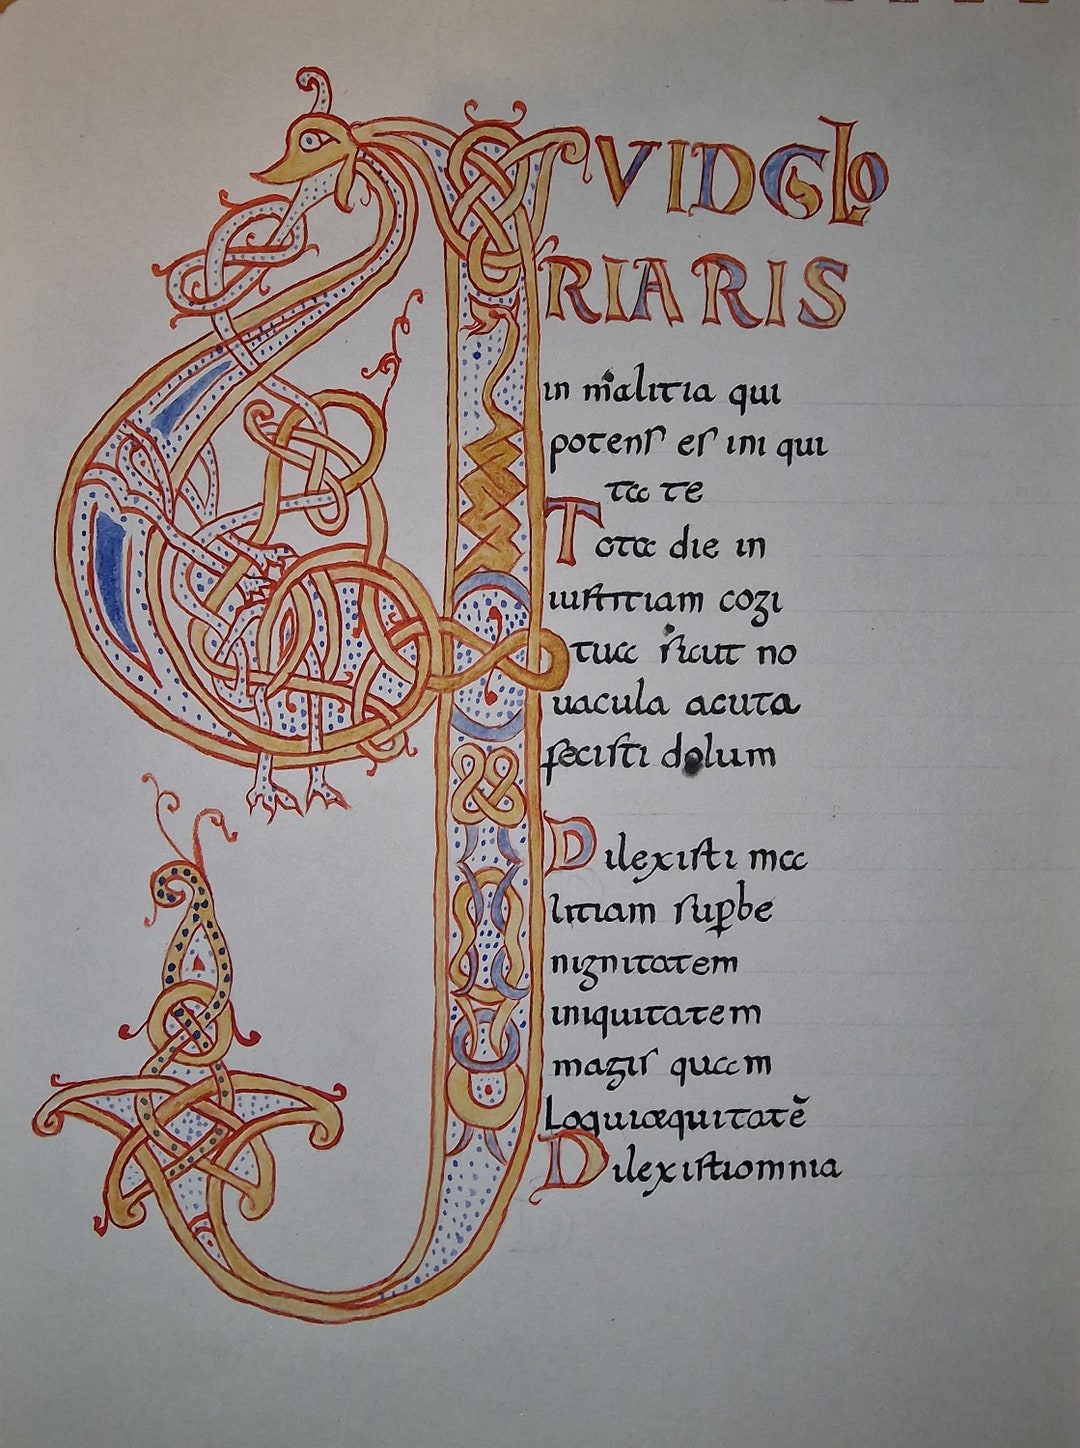 QUID GLO
RIARIS
in malitia qui
potens es ini qui
ta te
Tota die in
iustitiam cogi
tua sicut no
uacula acuta
fecisti dolum
Dilexisti ma
litiam sup̱be
nignitatem
iniquitatem
magis quam
Loquiæquitatē
Dilexistiomnia